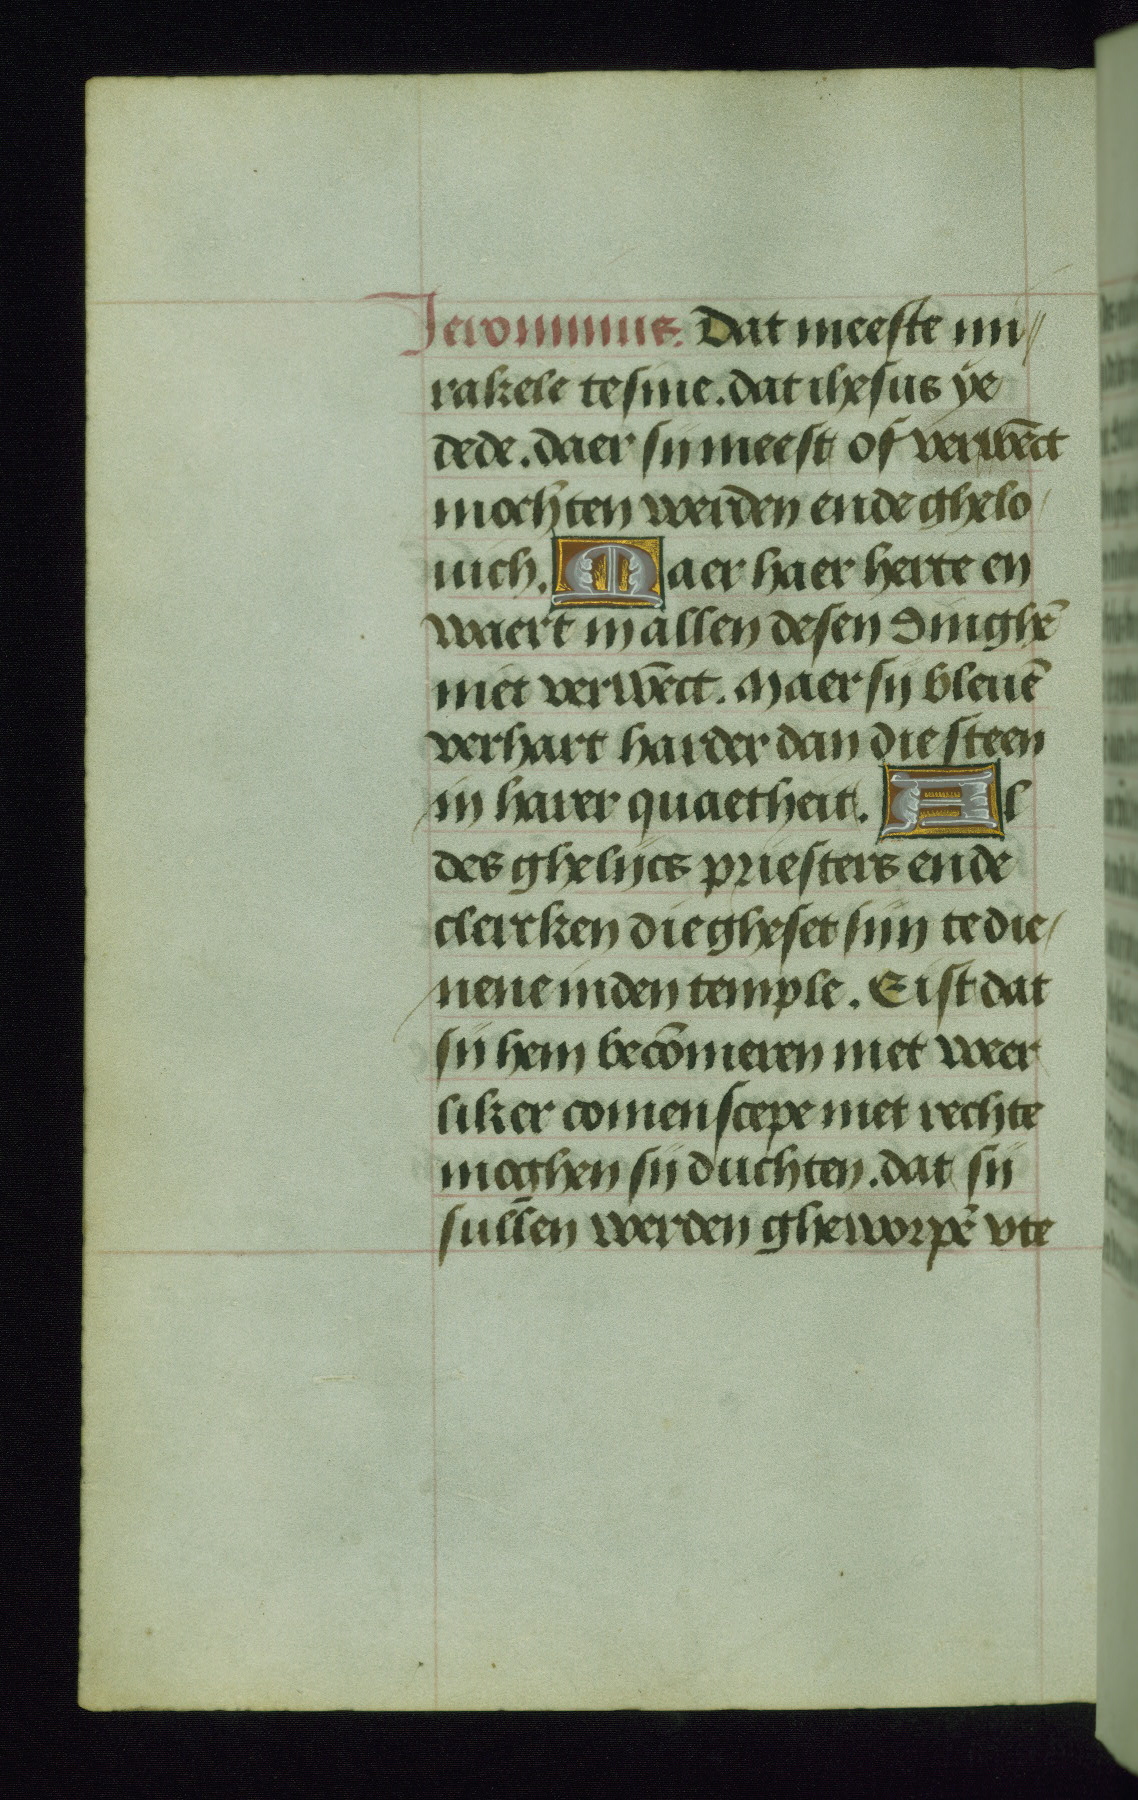 Jeronimus. Dat meeste mi//
rakele tesine. dat ihesus ye
dede. daer sij meest of verwēct
mochten werden ende ghelo/
uich. Maer haer herte en
waert in allen desen dinghē
niet verwēct. Maer sij bleuē
verhart harder dan die steen
in harer quaetheit. Al
des ghelijcs priesters ende
clercken die gheset sijn te die/
nene inden temple. Eist dat
sij hem becōmeren met weer
liker comenscepe met rechte
moghen sij duchten. dat sij
sullen werden gheworpē vte